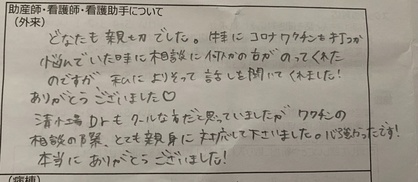 助産師・看護師・看護助手について
(外来)
どなたも親切でした。特にコロナワクチンを打つか
悩んでいた時に相談に何人かの方がのってくれた
のですが、私によりそって話しを聞いてくれました!
ありがとうございました♡
清水場Drもクールな方だと思っていましたがワクチンの
相談の際、とても親身に対応して下さいました。心強かったです!
本当にありがとうございました!
(病棟)